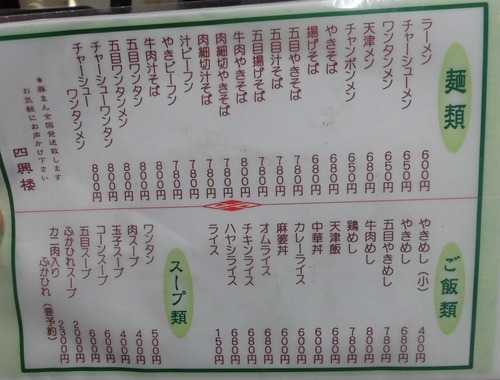 麺類
ラーメン 600円
チャーシューメン 650円
ワンタンメン 650円
天津メン 680円
チャンポンメン 650円
やきそば 680円
揚げそば 680円
五目やきそば 780円
五目汁そば 780円
五目揚げそば 780円
牛肉やきそば 800円
肉細切やきそば 780円
肉細切汁そば 780円
汁ビーフン 780円
やきビーフン 780円
牛肉汁そば 800円
五目ワンタン 800円
五目ワンタンメン 800円
チャーシューワンタン 800円
チャーシューワンタンメン 800円
＊豚まん全国発送致します
お気軽にお声かけ下さい
四興楼
ご飯類
やきめし（小） 400円
やきめし 680円
五目やきめし 780円
牛肉めし 800円
鶏めし 780円
天津飯 680円
中華丼 600円
カレーライス 600円
麻婆丼 600円
オムライス 680円
チキンライス 680円
ハヤシライス 680円
ライス 150円
スープ類
ワンタン 500円
肉スープ 400円
玉子スープ 400円
コーンスープ 600円
五目スープ 600円
ふかひれスープ 2000円
カニ肉入りふかひれ（要予約） 2300円